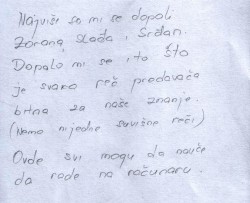 Najviše su mi se dopali
Zorana, Slađa i Srđan.
Dopalo mi se i to što
je svaka reč predavača
bitna za naše znanje.
(Nema nijedne suvišne reči)
Ovde svi mogu da nauče
da rade na računaru.